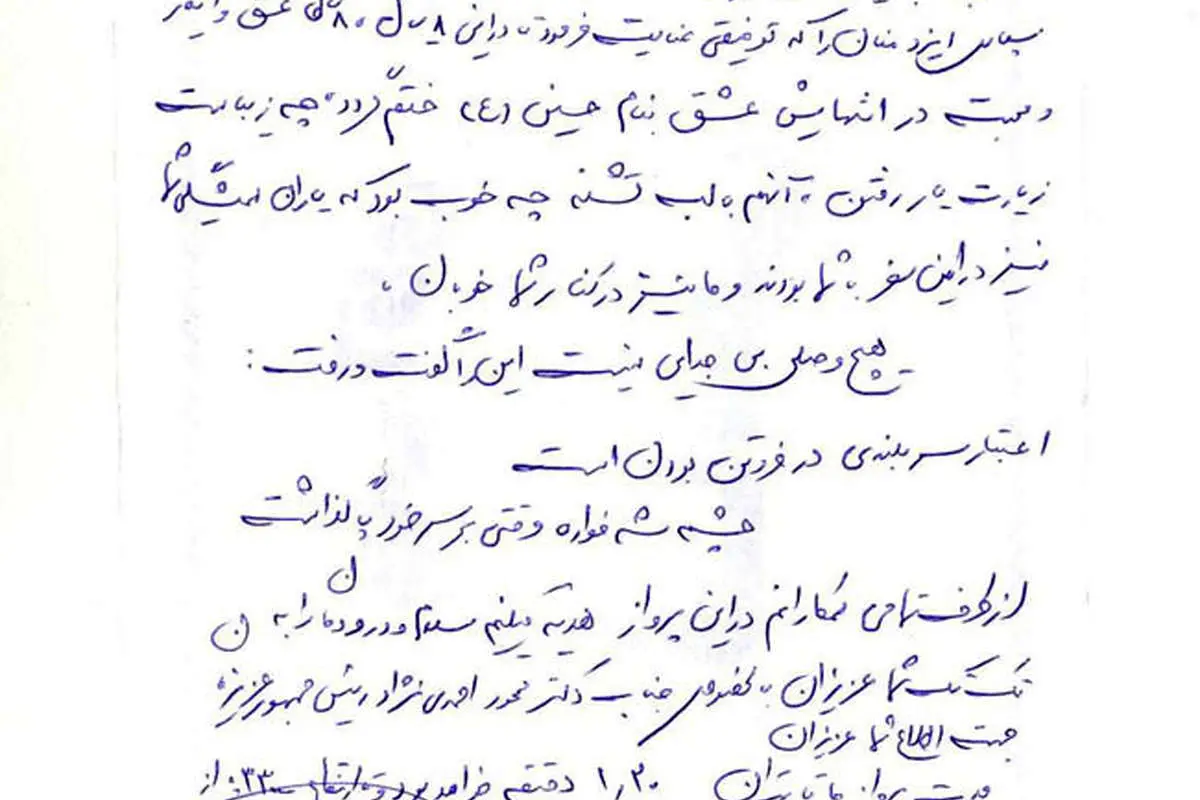 سپاس ایزد منان را که توفیقی عنایت فرمود تا در این ۸ سال ۸۰ سال عشق و ایثار
و محبت در انتهایش عشق بنام حسین (ع) ختم گردد، چه زیباست
زیارت یار رفتن، آنهم با لب تشنه چه خوب بود که یاران همیشگی شما
نیز در این سفر با شما بودند و ما نیز در کنار شما خوبان،
هیچ وصلی بی جدایی نیست این را گفت و رفت :
اعتبار سر بلندی در فروتن بودن است
چشمه شد فواره وقتی بر سر خود پا گذاشت
از طرف تمامی همکارانم در این پرواز هدیه میکنیم سلام و درودمان را به
تک تک شما عزیزان بالخصوص جناب دکتر محمود احمدی نژاد رئیس جمهور عزیز،
جهت اطلاع شما عزیزان
مدت پرواز ما تا تهران ۱٫۳۰ دقیقه خواهد بود و ارتفاع ۳۳۰۰۰ از